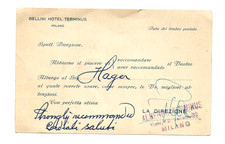 BELLINI HOTEL TERMINUS
MILANO
Data del timbro postale.
Spett. Direzione,
Abbiamo il piacere di raccomandare
aver raccomandato al Vostro
Albergo il Sig. Hager
al quale vorrete usare, come sempre, le Vs. migliori attenzioni.
Con perfetta stima
LA DIREZIONE
Strongly recommended
Cordiali saluti
TERMINUS
MILANO